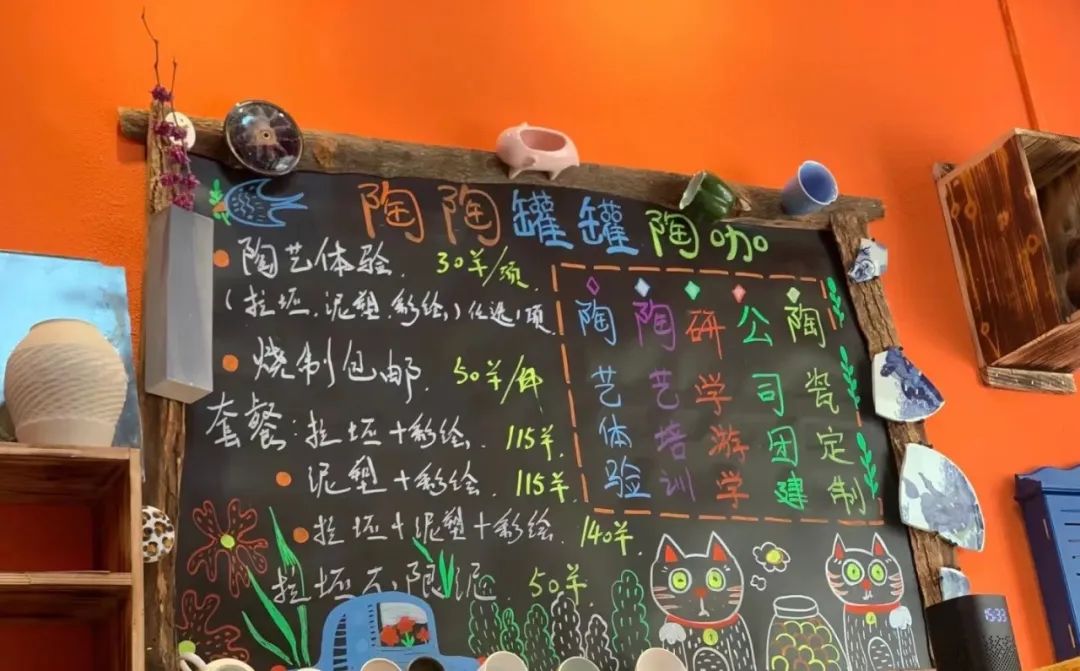 陶陶罐罐陶咖
陶艺体验 30羊/项
(拉坯.泥塑.彩绘)任选1项
烧制包邮. 50羊/件
套餐:拉坯+彩绘. 115羊.
泥塑+彩绘. 115羊.
拉坯+泥塑+彩绘. 140羊.
拉坯不限泥. 50羊.
陶艺体验
陶艺培训
研学游学
公司团建
陶瓷定制
15:33